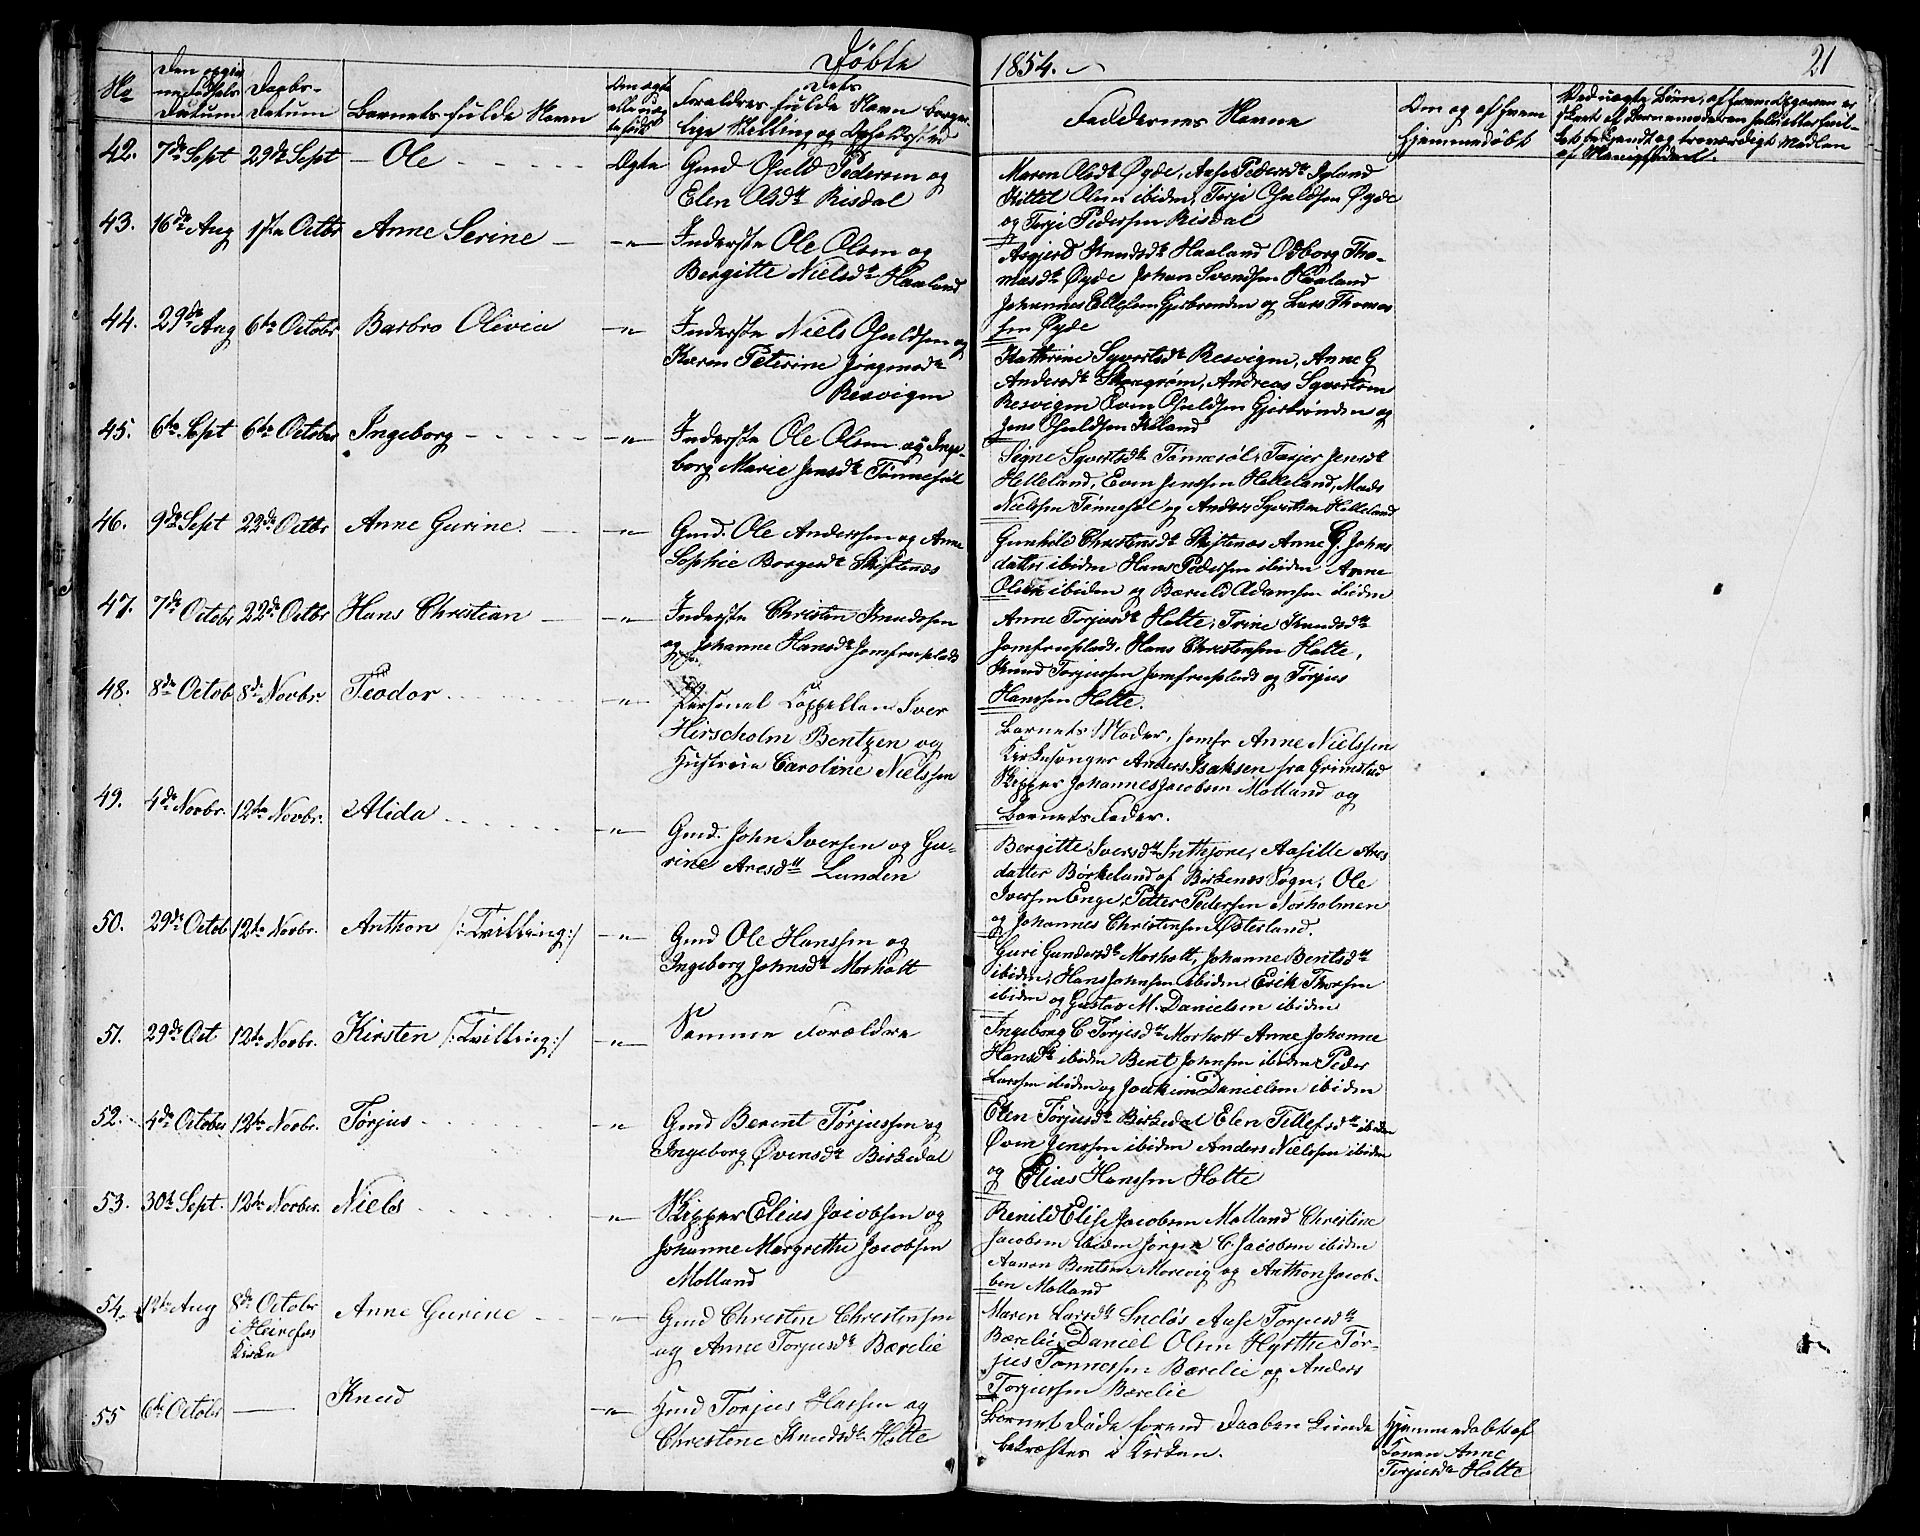 Døbte
1854.
21
No
Den opgivne Fødsels Datum
Daabs-Datum
Barnets fulde Navn
Om ægte eller uægte født
Forældres fulde Navn, borgerlige Stilling og Opholdssted
Faddernes Navne
Om og af hvem hjemmedøbt
42. 7de Sept 29de Sept Ole Ægte
Gmd Osuld Pedersen og
Elen Olsdtr Risdal
Maren Olsdtr Øyde, Aase Pedersdtr
Kittel Olsen ibiden, Torje Osuldsen Øyde
og Torje Pedersen Risdal
43. 16de Aug 1ste Octbr Anne Serine —"—
Inderste Ole Olsen og
Bergitte Nielsdtr Haaland
Asgjerd Knudsdtr Haaland Odborg Tho-
masdtr Øyde Johan Svendsen Haaland
Johannes Ellefsen Gjerbrønden og Lars Thomas
sen Øyde
44. 29de Aug 6te Octobr Barbro Olivia —"—
Inderste Niels Osuldsen og
Karen Peterine Jørgensdtr
Resvigen
Kathrine Syvertsdtr Resvigen, Anne G
Andersdtr Andreas Syvertsen
Resvigen Even Osuldsen Gjerbrønden og
Jens Osuldsen
45. 6te Sept 6te October Ingeborg —"—
Inderste Ole Olsen og Inge-
borg Marie Jensdtr Tønnesøl
Signe Syvertsdtr Tønnesøl, Tarjer Jensdtr
Helleland, Even Jenssen Helleland, Mads
Nielssen Tønnesøl og Anders Syvertsen Helleland
46. 9de Sept 22de Octbr Anne Gurine —"—
Gmd. Ole Anderssen og Anne
Sophie Borgesdtr Skiftenæs
Gunhild Christensdtr Skiftenæs Anne G. Johns
datter ibiden Hans Pedersen ibiden Anne
Olsen ibiden og Bæruld Adamsen ibiden
47. 7de Octobr 22de Octbr Hans Christian —"—
Inderste Christen Knudssen
og Johanne Hansdtr Jomfrueplads
Anne Torjusdtr Holte, Trine Knudsdtr
Jomfrueplads, Hans Christensen Holte,
Knud Torjussen Jomfrueplads og Tørjus
Hanssen Holte.
48. 8de Octob 8de Novbr. Teodor —"—
Personel Cappellan Iver
Hirscholm Bentzen og
Hustrue Caroline Nielssen
Barnets Moder, Jomfr Anne Nielssen
Kirkesanger Anders Isaksen fra Grimstad
Skipper Johannes Jacobsen Molland og
Barnets Fader.
49. 4de Novbr. 12te Novbr. Alida —"—
Gmd. John Iversen og Gu-
rine Aresdtr Lunden
Bergitte Iversdtr Aasille Ares
datter Børkeland af Birkenæs Sogn, Ole
Iversen Enge, Petter Pedersen Norholmen
og Johannes Christensen Østerland.
50. 29de Octob 12te Novbr. Anthon /:Tvilling:/ —"—
Gmd Ole Hanssen og
Ingeborg Johnsdtr Morholt
Guri Gundersdtr Morholt, Johanne Bentsdtr
ibiden, Hans Johnsen ibiden, Erik Thorsen
ibiden og Gustav M. Danielsen ibiden
51. 29de Oct 12te Novbr. Kirsten /:Tvilling:/ —"—
Samme Forældre
Ingeborg C Torjusdtr Morholt Anne Johanne
Hansdtr ibiden Bent Johnsen ibiden Peder
Larssen ibiden og Joakim Danielsen ibiden
52. 4de October 12te Novbr. Tørjus —"—
Gmd Berent Tørjussen og
Ingeborg Øvensdtr Birkedal
Elen Tørjusdtr Birkedal Elen Tellefsdtr ibiden
Øven Jenssen ibiden Anders Nielssen ibiden
og Elias Hanssen Holte
53. 30te Sept. 12te Novber. Niels —"—
Skipper Elias Jacobsen og
Johanne Margrethe Jacobsen
Molland
Renild Elise Jacobsen Molland Christine
Jacobsen ibiden Jørgen C. Jacobsen ibiden
Aanon Bentsen Morevig og Anthon Jacob-
sen Molland
54. 12te Aug 8de Octobr i Heirefos Kirke Anne Gurine —"—
Gmd Christen Christensen
og Anne Torjusdtr Bærelie
Maren Larsdtr Sneløs Aase Torjusdtr
Bærelie, Daniel Olsen Hytte Tør-
jus Tønnessen Bærelie og Anders
Torjussen Bærelie
55 6te Octobr — Knud —"—
Gmd Torjus Hansen og
Christine Knudsdtr Holte
Barnet døde forend Daaben kunde
bekræftes i Kirken.
Hjemmedøbt af
Anne
Torjusdtr Holte